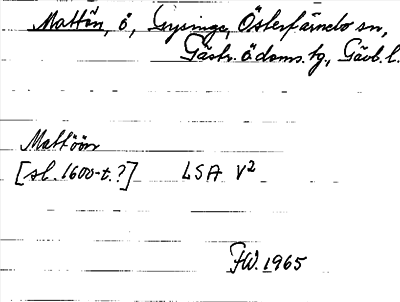 Mattön, ö, Lrysinge, Österfärnebo sn,
Gästr. ö. doms. tg., Gävl. l.
Mattöön
[sl. 1600-t.?] LSA V²
FW. 1965